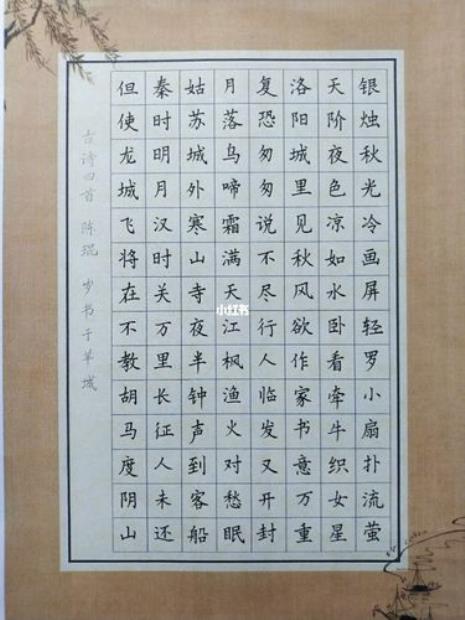 银烛秋光冷画屏轻罗小扇扑流萤
天阶夜色凉如水卧看牵牛织女星
洛阳城里见秋风欲作家书意万重
复恐匆匆说不尽行人临发又开封
月落乌啼霜满天江枫渔火对愁眠
姑苏城外寒山寺夜半钟声到客船
秦时明月汉时关万里长征人未还
但使龙城飞将在不教胡马度阴山
古诗四首 陈琨 书于羊城
小红书